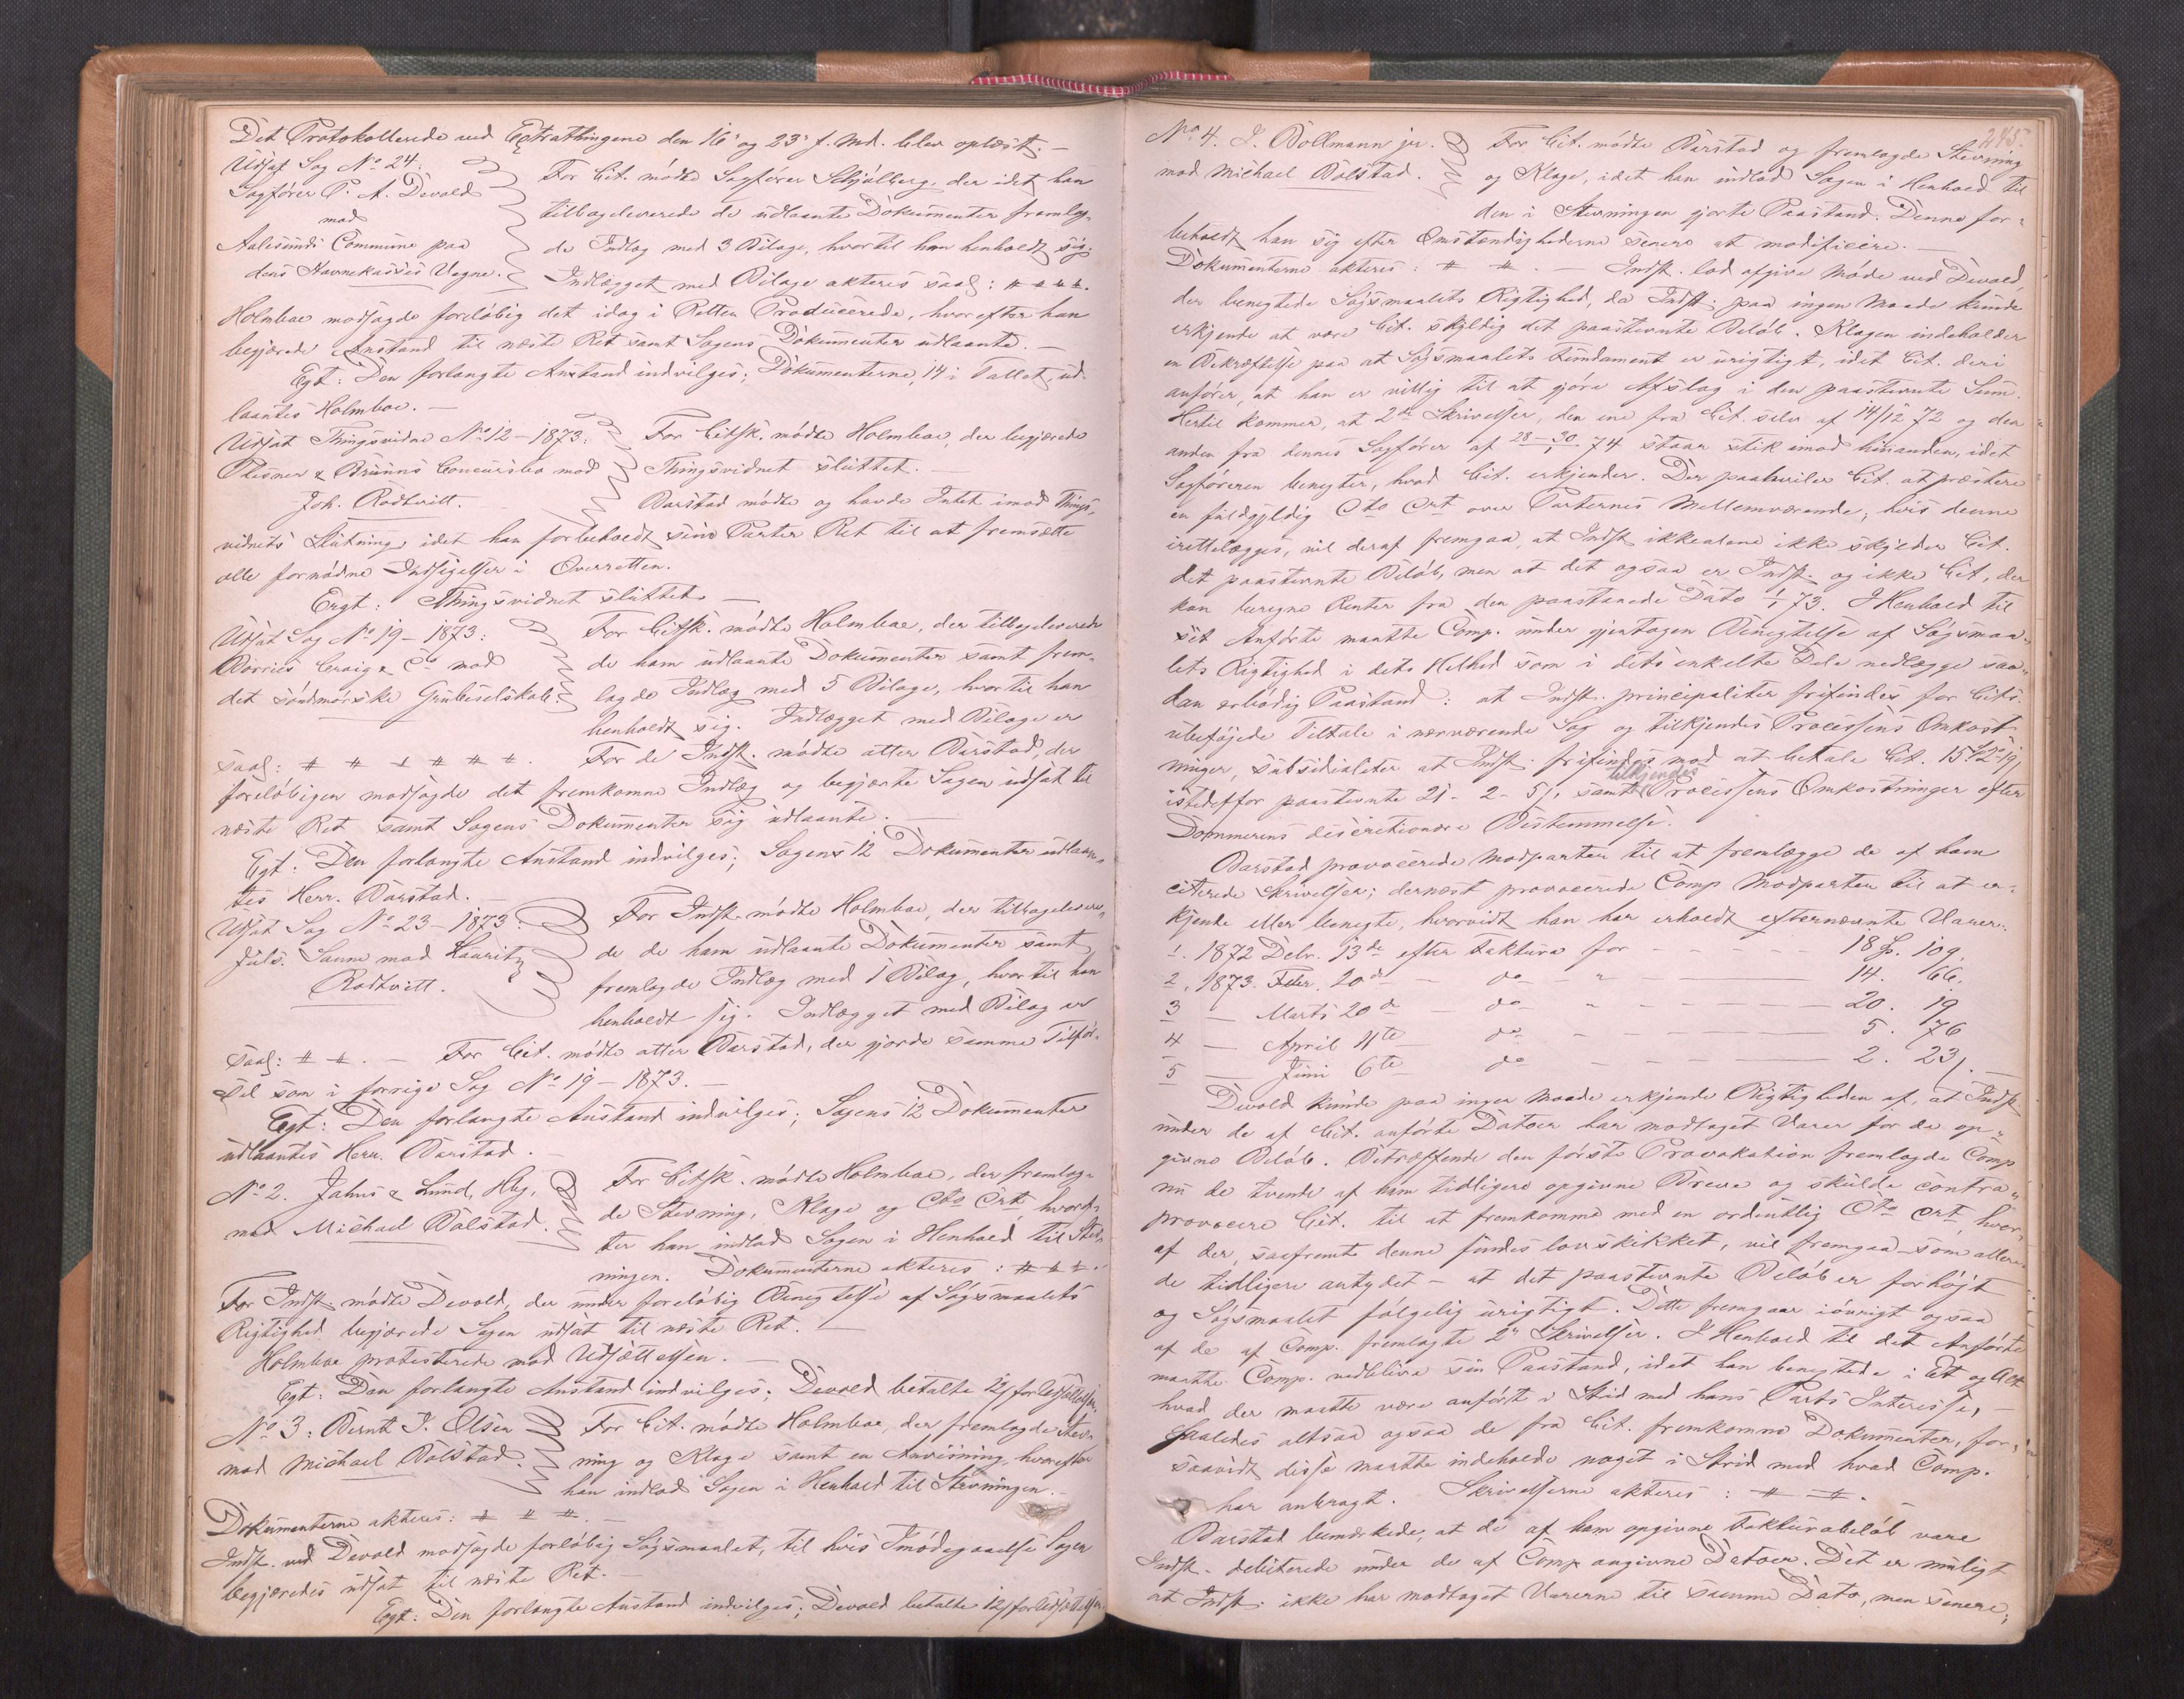 Det Protokollerede ved Extrathingene den 16' og 23' f. Md. blev oplæst. —
Udsat Sag No 24:
Sagfører P. A. Devold
mod
Aalesunds Commune paa
dens Havnekasses Vegne.
For Cit. mødte Sagfører Schjølberg, der idet han
tilbageleverede de udlaante Dokumenter fremlag-
de Indlæg med 3 Bilage, hvortil han henholdt sig.
Indlægget med Bilage akteres saal: # # # #.
Holmboe modsagde foreløbig det idag i Retten Producerede, hvorefter han
begjærede Anstand til næste Ret samt Sagens Dokumenter udlaante. —
Egt: Den forlangte Anstand indvilges; Dokumenterne, 14 i Tallet, ud-
laantes Holmboe. —
Udsat Thingsvidne No 12 - 1873:
Plesner & Brunns Concursbo mod
Joh. Rodtvitt.
For Citsk. mødte Holmboe, der begjærede
Thingsvidnet sluttet. —
Barstad mødte og havde Intet imod Things-
vidnets Slutning, idet han forbeholdt sine Parter Ret til at fremsætte
alle fornødne Indsigelser i Overretten.
Eragt: Thingsvidnet sluttet. —
Udsat Sag No 19 - 1873:
Borries Craig & Co mod
det søndmørske Grubeselskab:
For Citsk. mødte Holmboe, der tilbageleverede
de ham udlaante Dokumenter samt frem-
lagde Indlæg med 5 Bilage, hvortil han
henholdt sig. Indlægget med Bilage er
saal: # # # # # #. For de Indst. mødte atter Barstad, der
foreløbigen modsagde det fremkomne Indlæg og begjærte Sagen udsat til
næste Ret samt Sagens Dokumenter sig udlaante. —
Egt: Den forlangte Anstand indvilges; Sagens 12 Dokumenter udlaan-
tes Herr. Barstad. —
Udsat Sag No 23 - 1873:
Juls. Saune mod Lauritz
Rodtvitt.
For Indst. mødte Holmboe, der tilbagelevere-
de de ham udlaante Dokumenter samt
fremlagde Indlæg med 1 Bilag, hvortil han
henholdt sig. Indlægget med Bilag er
saal: # #. — For Cit. mødte atter Barstad, der gjorde samme Tilfør-
sel som i forrige Sag No 19 - 1873. —
Egt: Den forlangte Anstand indvilges; Sagens 12 Dokumenter
udlaantes Herr. Barstad. —
No 2. Jahns & Lund, Hbg,
mod Michael Bolstad.
For Citsk. mødte Holmboe, der fremlag-
de Stevning, Klage og Cto Crt, hvoref-
ter han indlod Sagen i Henhold til Stev-
ningen. Dokumenterne akteres: # # #.
For Indst. mødte Devold, der under foreløbig Benegtelse af Søgsmaalets
Rigtighed begjærede Sagen udsat til næste Ret. —
Holmboe protesterede mod Udsættelsen. —
Egt: Den forlangte Anstand indvilges; Devold betalte 12/ for Udsættelsen.
No 3: Bernt J. Olsen
mod Michael Bolstad.
For Cit. mødte Holmboe, der fremlagde Stev-
ning og Klage samt en Anvisning, hvorefter
han indlod Sagen i Henhold til Stevningen. —
Dokumenterne akteres: # # #. —
Indst. ved Devold modsagde foreløbig Søgsmaalet, til hvis Imødegaaelse Sagen
begjæredes udsat til næste Ret. —
Egt: Den forlangte Anstand indvilges; Devold betalte 12/ for Udsættelsen.
245.
No 4. J. Bollmann jr.
mod Michael Bolstad.
For Cit. mødte Barstad og fremlagde Stevning
og Klage, idet han indlod Sagen i Henhold til
den i Stevningen gjorte Paastand. Denne for-
beholdt han sig efter Omstændighederne senere at modificere. —
Dokumenterne akteres: # #. — Indst. lod afgive Møde ved Devold,
der benegtede Søgsmaalets Rigtighed, da Indst. paa ingen Maade kunde
erkjende at være Cit. skyldig det paastevnte Beløb. Klagen indeholder
en Bekræftelse paa at Søgsmaalets Fundament er urigtigt, idet Cit. deri
anfører, at han er villig til at gjøre Afslag i den paastevnte Sum.
Hertil kommer, at 2de Skrivelser, den ene fra Cit. selv af 14/12 72 og den
anden fra dennes Sagfører af 28-30/1 74 staar stik imod hinanden, idet
Sagføreren benegter, hvad Cit. erkjender. Der paahviler Cit. at præstere
en fuldgyldig Cto Crt over Parternes Mellemværende; hvis denne
irettelægges, vil deraf fremgaa, at Indst. ikke alene ikke skylder Cit.
det paastevnte Beløb, men at det ogsaa er Indst. og ikke Cit., der
kan beregne Renter fra den paastaaede Dato 1/1 73. I Henhold til
det Anførte maatte Comp. under gjentagen Benegtelse af Søgsmaa-
lets Rigtighed i dets Helhed som i dets enkelte Dele nedlægge saa-
dan ærbødig Paastand: at Indst. principaliter frifindes for Cits.
ubeføjede Tiltale i nærværende Sag og tilkjendes Processens Omkost-
ninger, subsidialiter at Indst. frifindes mod at betale Cit. 15 Sp 2 19/
istedetfor paastevnte 21 - 2 - 5/, samt tilkjendes Processens Omkostninger efter
Dommerens discretionære Bestemmelse.
Barstad provocerede Modparten til at fremlægge de af ham
citerede Skrivelser; dernæst provocerede Comp Modparten til at er-
kjende eller benegte, hvorvidt han har erholdt efternævnte Varer:
1. 1872 Debr. 13de efter Faktura for — 18 Sp. 109.
2. 1873. Febr. 20de — do — " — 14. 66.
3 — Marts 20de — do — " — 20. 19
4 — April 11te — do — 5. 76
5 — Juni 6te — do — 2. 23/. —
Devold kunde paa ingen Maade erkjende Rigtigheden af, at Indst
under de af Cit. anførte Datoer har modtaget Varer for de op-
givne Beløb. Betræffende den første Provokation fremlagde Comp
nu de tvende af ham tidligere opgivne Breve og skulde contra-
provocere Cit. til at fremkomme med en ordentlig Cto Crt, hvor-
af der, saafremt denne findes lovskikket, vil fremgaa – som allere-
de tidligere antydet – at det paastevnte Beløb er forhøjt
og Søgsmaalet følgelig urigtigt. Dette fremgaar iøvrigt ogsaa
af de af Comp. fremlagte 2de Skrivelser. I Henhold til det Anførte
maatte Comp. vedblive sin Paastand, idet han benegtede i Et og Alt
hvad der maatte være anført i Strid med hans Parts Interesse,
saaledes altsaa ogsaa de fra Cit. fremkomne Dokumenter, for-
saavidt disse maatte indeholde noget i Strid med hvad Comp.
har anbragt. Skrivelserne akteres: # #. —
Barstad bemærkede, at de af ham opgivne Fakturabeløb vare
Indst. debiterede under de af Comp angivne Datoer. Det er muligt
at Indst. ikke har modtaget Varerne til samme Dato, men senere;